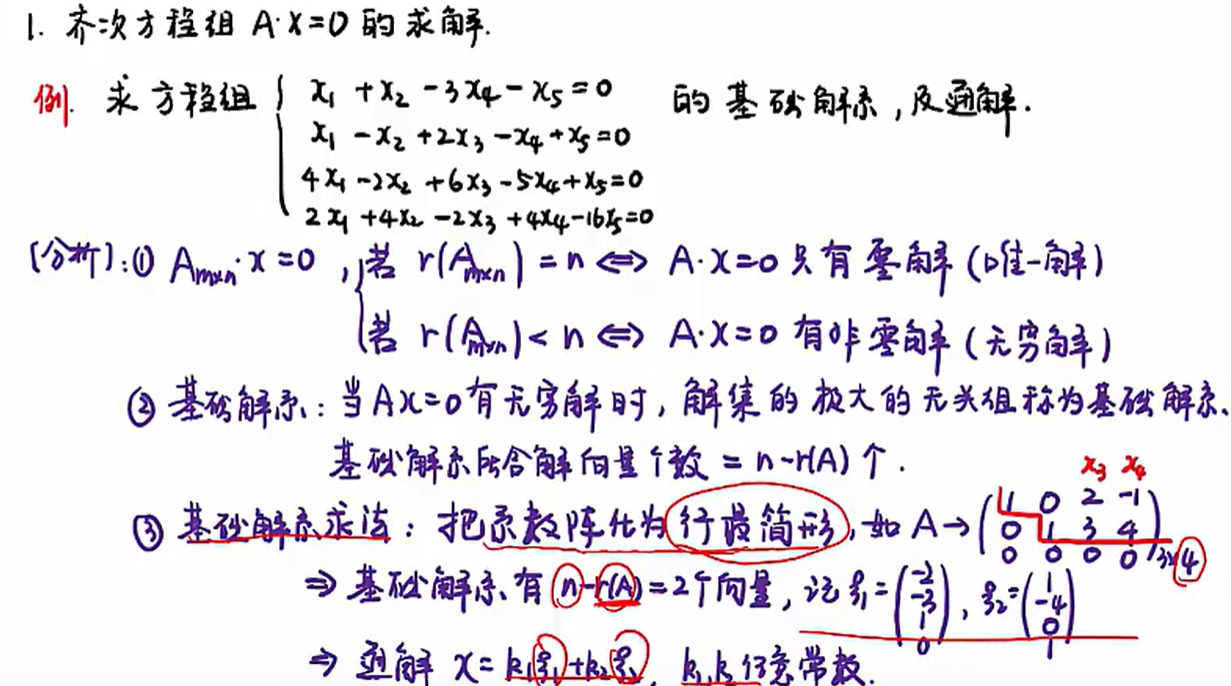 1. 齐次方程组 A·x=0 的求解.
例. 求方程组 { x₁ + x₂ - 3x₄ - x₅ = 0 的基础解系,及通解.
x₁ - x₂ + 2x₃ - x₄ + x₅ = 0
4x₁ - 2x₂ + 6x₃ - 5x₄ + x₅ = 0
2x₁ + 4x₂ - 2x₃ + 4x₄ - 16x₅ = 0
[分析]:① Aₘₓₙ·x=0, { 若 r(Aₘₓₙ) = n ⇔ A·x=0 只有零解 (唯一解)
若 r(Aₘₓₙ) < n ⇔ A·x=0 有非零解 (无穷解)
② 基础解系: 当Ax=0有无穷解时, 解集的极大的无关组称为基础解系、
基础解系所含解向量个数 = n-r(A) 个.
x₃ x₄
③ 基础解系求法: 把系数阵化为行最简形, 如 A → ( 1 0 2 -1
0 1 3 4
0 0 0 0 )₃ₓ₄
⇒ 基础解系有 n-r(A)=2个向量, 记 ξ₁=(-2 -3 1 0), ξ₂=(1 -4 0 1)
⇒ 通解 x = k₁ξ₁+k₂ξ₂, k₁,k₂任意常数.